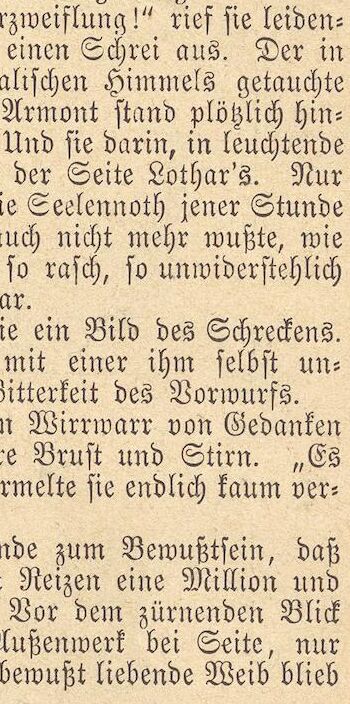 rzweiflung!“ rief ſie leiden⸗
einen Schrei aus. Der in
aliſchen Himmels getauchte
Armont ſtand plötzlich hin⸗
Und ſie darin, in leuchtende
der Seite Lothar's. Nur
ie Seelennoth jener Stunde
auch nicht mehr wußte, wie
ſo raſch, ſo unwiderſtehlich
ar.
ie ein Bild des Schreckens.
mit einer ihm ſelbſt un⸗
Bitterkeit des Vorwurfs.
n Wirrwarr von Gedanken
re Bruſt und Stirn. „Es
rmelte ſie endlich kaum ver⸗
nde zum Bewußtſein, daß
Reizen eine Million und
Vor dem zürnenden Blick
Außenwerk bei Seite, nur
bewußt liebende Weib blieb